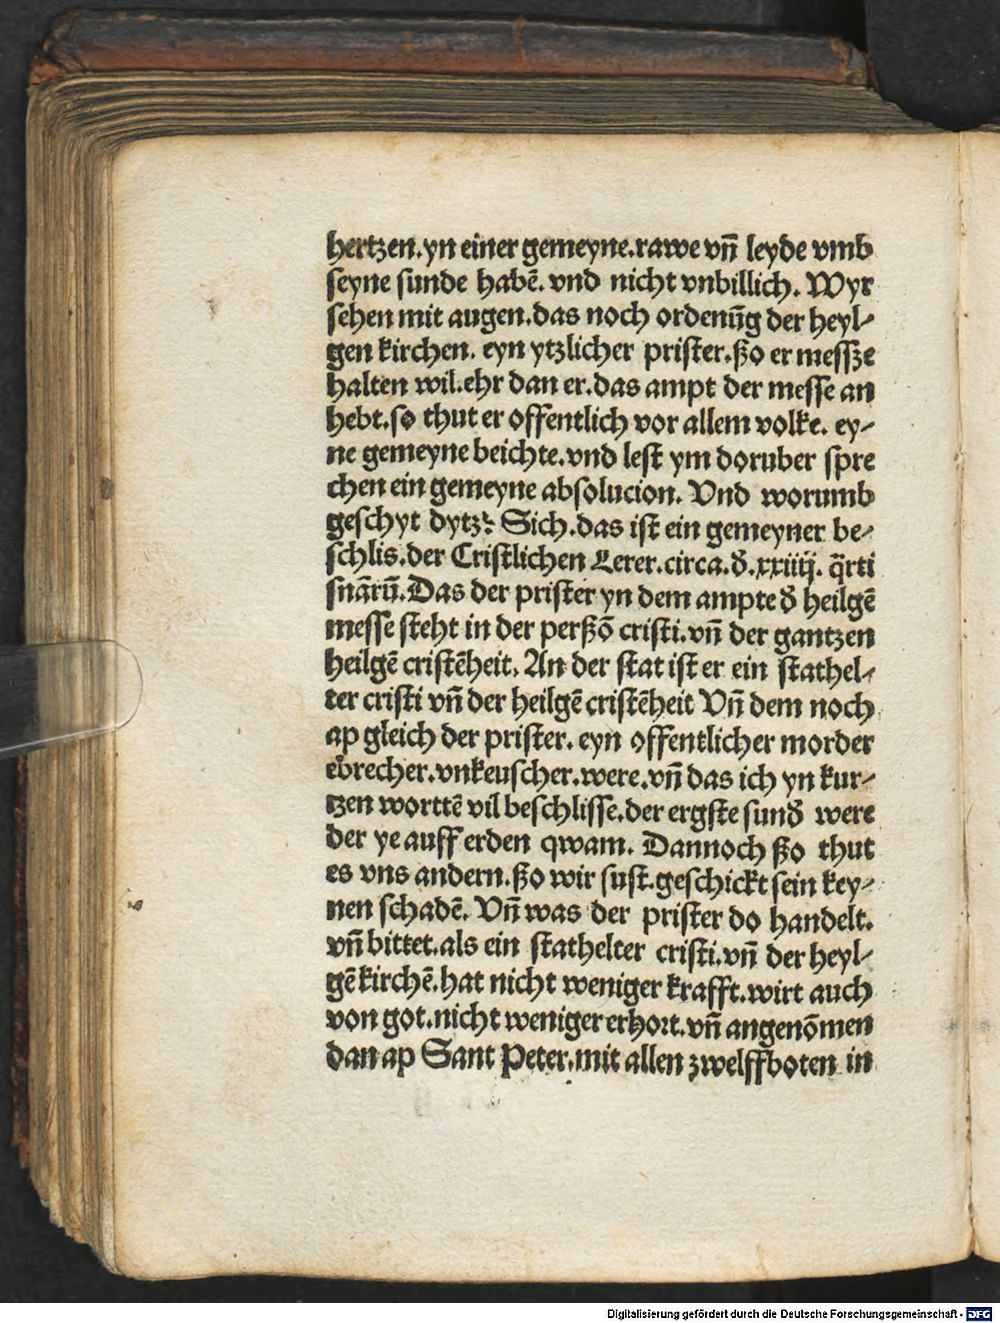 hertzen. yn einer gemeyne. rawe vn̄ leyde vmb
seyne sunde habē. vnd nicht vnbillich. Wyr
sehen mit augen. das noch ordenūg der heyl⸗
gen kirchen. eyn ytzlicher prister. ßo er messze
halten wil. ehr dan er. das ampt der messe an
hebt. so thut er offentlich vor allem volke. ey⸗
ne gemeyne beichte. vnd lest ym doruber spre
chen ein gemeyne absolucion. Vnd worumb
geschyt dytz? Sich. das ist ein gemeyner be⸗
schlis. der Cristlichen Lerer. circa. ð. xxiiij. q̄rti
sn̄arū. Das der prister yn dem ampte ð heilgē
messe steht in der perßō cristi. vn̄ der gantzen
heilgē cristēheit. An der stat ist er ein stathel⸗
ter cristi vn̄ der heilgē cristēheit Vn̄ dem noch
ap gleich der prister. eyn offentlicher morder
ebrecher. vnkeuscher. were. vn̄ das ich yn kur⸗
tzen worttē vil beschlisse. der ergste sunð were
der ye auff erden qwam. Dannoch ßo thut
es vns andern. ßo wir sust. geschickt sein key⸗
nen schadē. Vn̄ was der prister do handelt.
vn̄ bittet. als ein stathelter cristi. vn̄ der heyl⸗
gē kirchē. hat nicht weniger krafft. wirt auch
von got. nicht weniger erhort. vn̄ angenōmen
dan ap Sant Peter. mit allen zwelffboten in
Digitalisierung gefördert durch die Deutsche Forschungsgemeinschaft - DFG